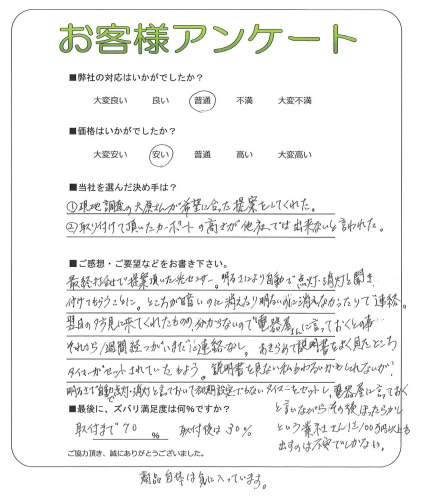 お客様アンケート
■弊社の対応はいかがでしたか？
大変良い 良い 普通 不満 大変不満
■価格はいかがでしたか？
大変安い 安い 普通 高い 大変高い
■当社を選んだ決め手は？
①現地調査の大原さんが希望に合った提案をしてくれた。
②取り付けて頂いたカーポートの高さが他店では出来ないと言われた。
■ご感想・ご要望などをお書き下さい。
最終打合せで提案頂いた光センサー。明るさにより自動で点灯・消灯と聞き、
付けてもらうことに。ところが暗いのに消えたり明るいのに消えなかったりで連絡。
翌日の夕方見に来てくれたものの、分からないので電器屋さんに言っておくとの事…
それから1週間経つがいまだに連絡なし。あきらめて説明書をよく見たところ
タイマーがセットされていたもよう。説明書を見ない私もわるいかもしれないが！
明るさで自動点灯・消灯と言っておいて初期設定でもないタイマーをセットし、電器屋に言っておく
と言いながらその後ほったらかし
という業社さんに100万円以上も
出すのは不安でしかない。
■最後に、ズバリ満足度は何％ですか？
取付まで70 % 取付後は30%
ご協力頂き、誠にありがとうございました。
商品自体は気に入っています。